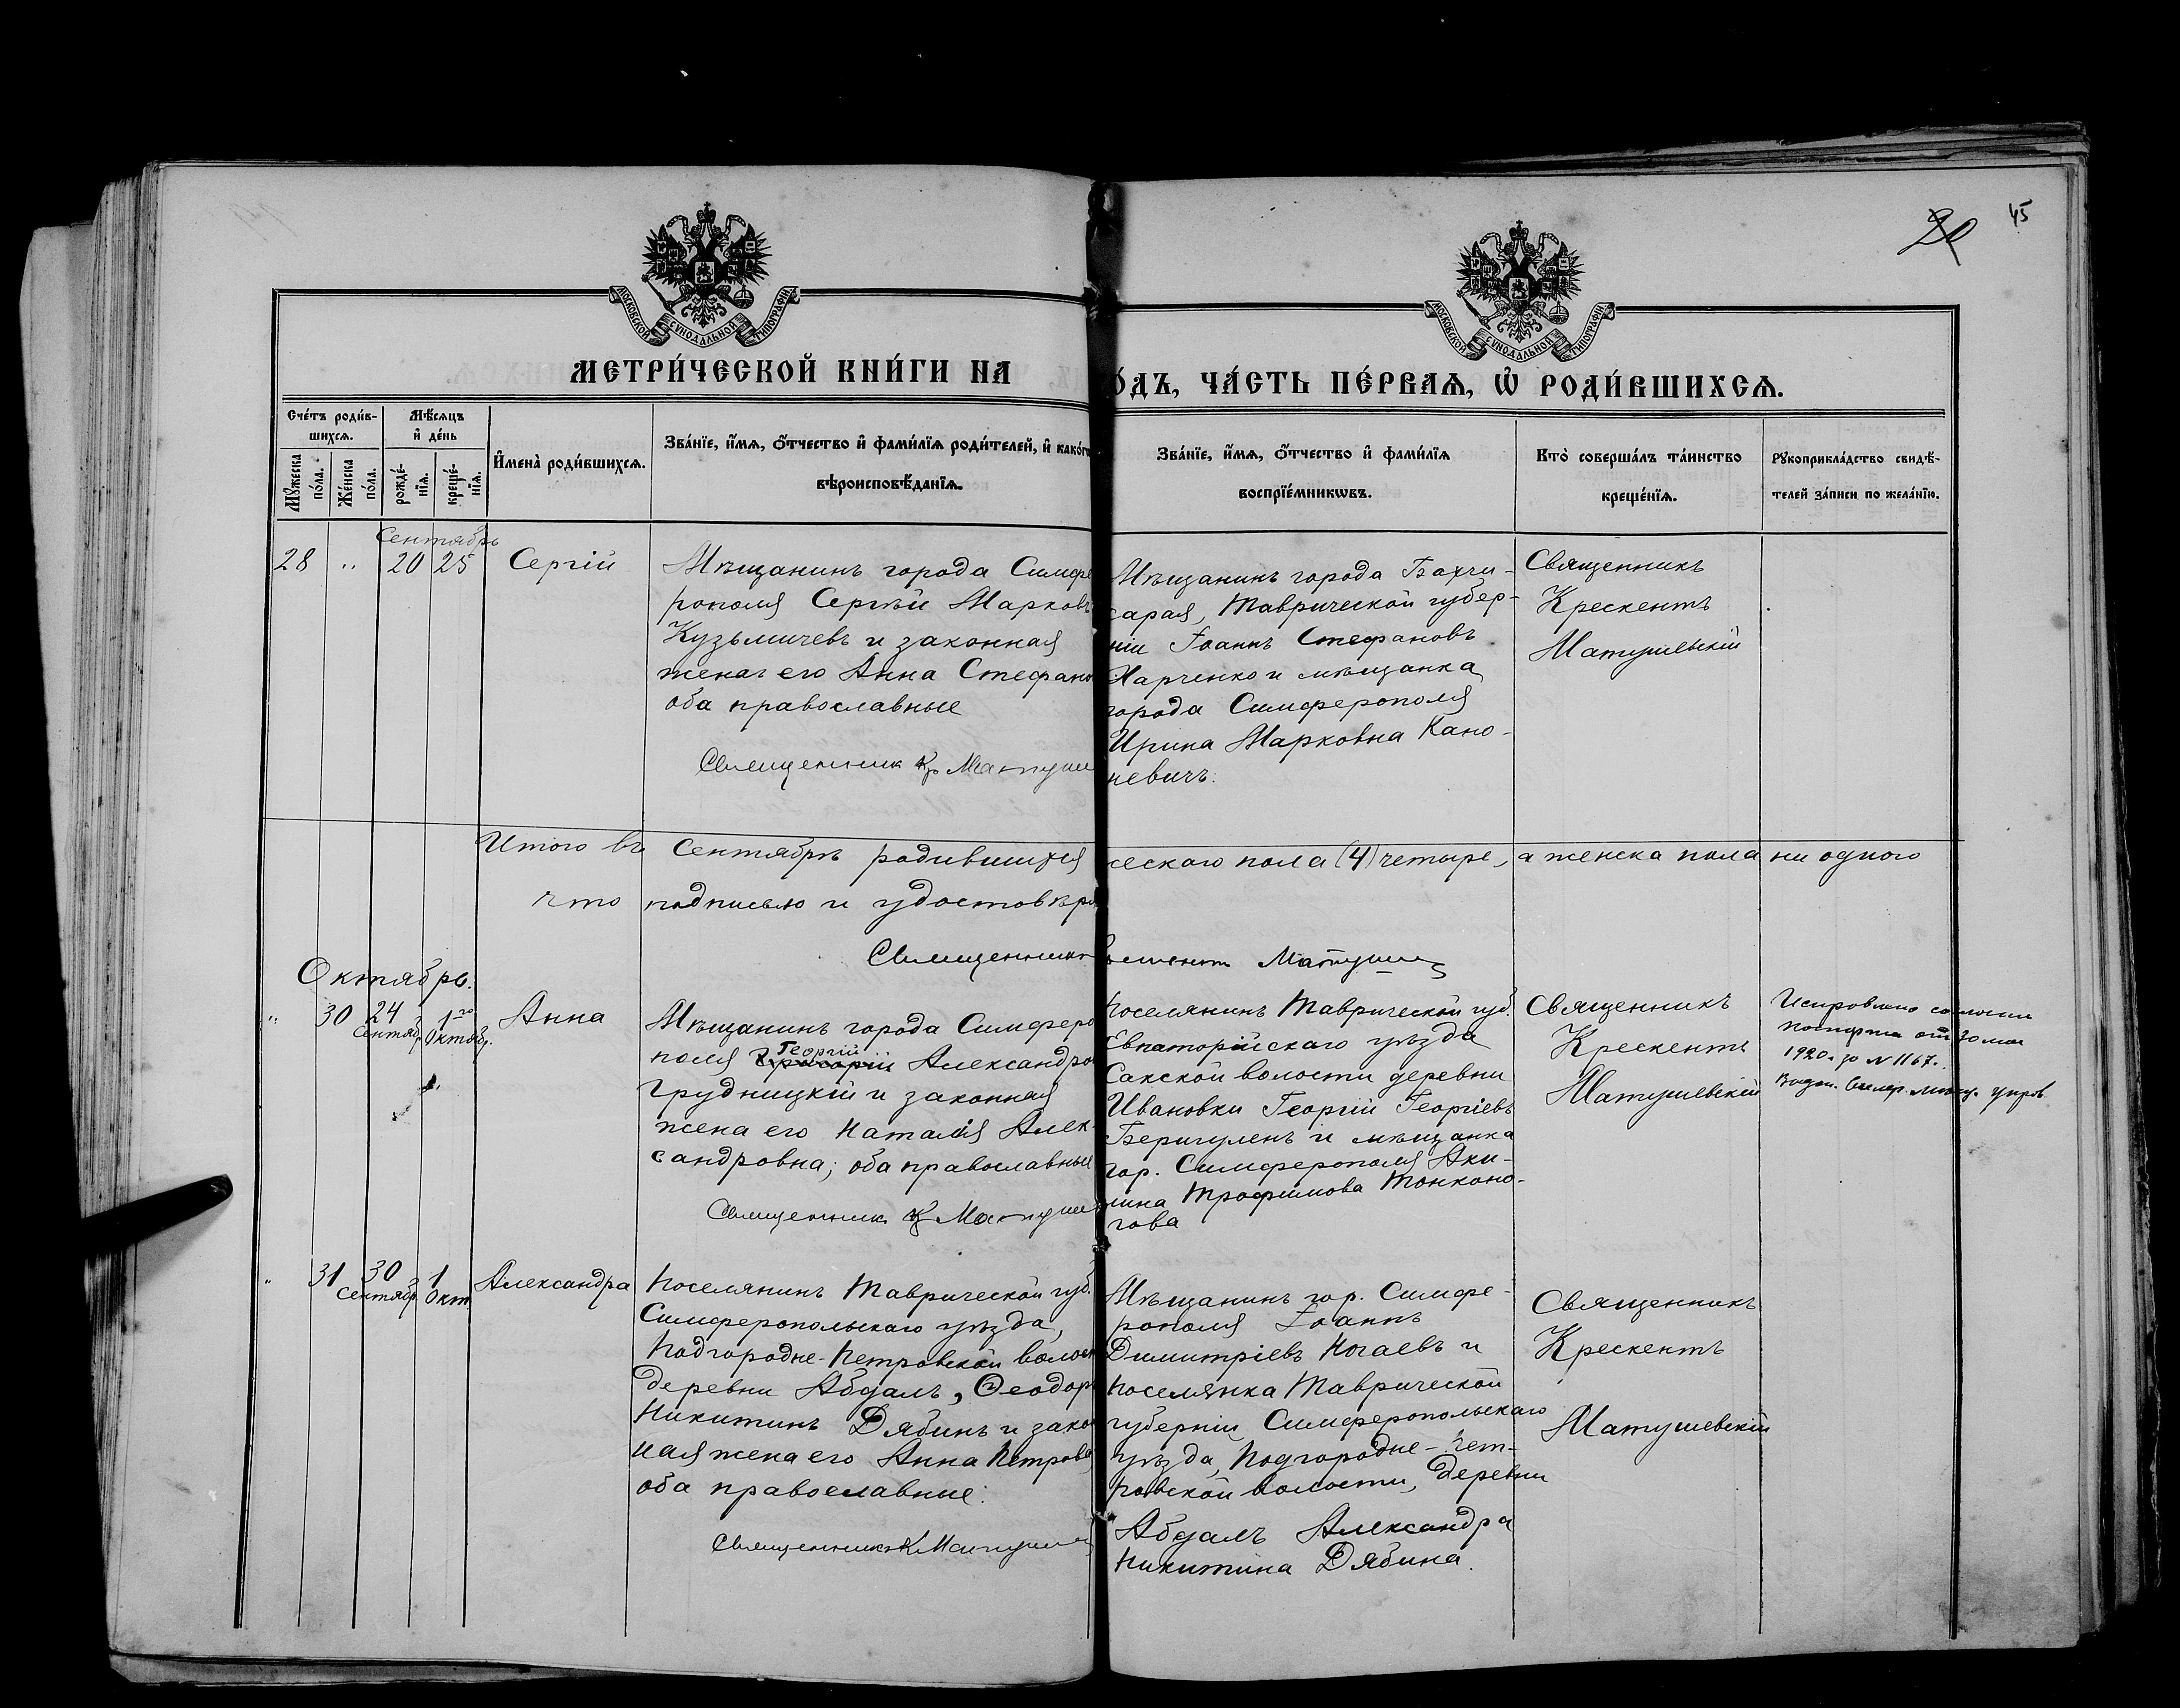 20 45
МОСКОВСКОЙ СѴНОДАЛЬНОЙ ТИПОГРАФІИ
МОСКОВСКОЙ СѴНОДАЛЬНОЙ ТИПОГРАФІИ
МЕТРИ́ЧЕСКОЙ КНИ́ГИ НА
О́ДЪ, ЧА́СТЬ ПЕ́РВАѦ, Ѽ РОДИ́ВШИХСѦ.
Сче́тъ роди́в-
шихсѧ.
Мѣ́сѧцъ
и҆ де́нь
Мꙋ́жеска
по́ла.
Же́нска
по́ла.
рожде́-
нїѧ.
креще́-
нїѧ.
И҆мена̀ роди́вшихсѧ.
Зва́нїе, и҆́мѧ, ѻ҆́тчество и҆ фами́лїѧ роди́телей, и҆ како́гѡ
вѣроисповѣ́данїѧ.
Зва́нїе, и҆́мѧ, ѻ҆́тчество и҆ фами́лїѧ
воспрїе́мникѡвъ.
Кто̀ соверша́лъ та́инство
креще́нїѧ.
Рꙋкоприкла́дство свидѣ́-
телей за́писи по жела́нїю.
Сентябрь
28 " 20 25 Сергій
Мѣщанинъ города Симфе
рополя Сергѣй Марковъ
Кузьмичевъ и законная
жена его Анна Стефано
оба православные
Священник Кр Матуше
Мѣщанинъ города Бахчи-
сарая, Таврической губер-
ніи Іоаннъ Стефановъ
Харченко и мѣщанка
города Симферополя
Ирина Марковна Кано-
невичъ.
Священникъ
Крескентъ
Матушевскій
Итого въ Сентябрѣ родившихся ческаго пола (4) четыре, а женска пола ни одного
что подписью и удостовѣря
Священникъ Матушев
Октябрь.
" 30 24 Сентяб. 1го Октяб. Анна
Мѣщанинъ города Симферо
поля Григорій Георгій Александро
Грудницкій и законная
жена его Наталія Алек-
сандровна; оба православные
Священник К Матуше
Поселянинъ Таврической губ.
Евпаторійскаго уѣзда
Сакской волости деревни
Ивановки Георгій Георгіевъ
и мѣщанка
гор. Симферополя Аки-
лина Трофимова Тонконо-
гова
Священникъ
Крескентъ
Матушевскій
Исправлено согласно
паспорта от 30 мая
1920 г за № 1167.
Выдан. Симф. мѣщ. управ
" 31 30 Сентябр. 1 Окт. Александра
Поселянинъ Таврической губ.
Симферопольскаго уѣзда,
Подгородне-Петровской волост
деревни Абдалъ, Ѳеодоръ
Никитинъ Дябинъ и закон
ная жена его Анна Петровн
оба православные.
Священникъ К Матуше
Мѣщанинъ гор. Симфе-
рополя Іоаннъ
Димитріевъ Ногаевъ и
поселянка Таврической
губерніи Симферопольскаго
уѣзда, Подгородне-Пет-
ровской волости, деревни
Абдалъ Александра
Никитина Дябина.
Священникъ
Крескентъ
Матушевскій